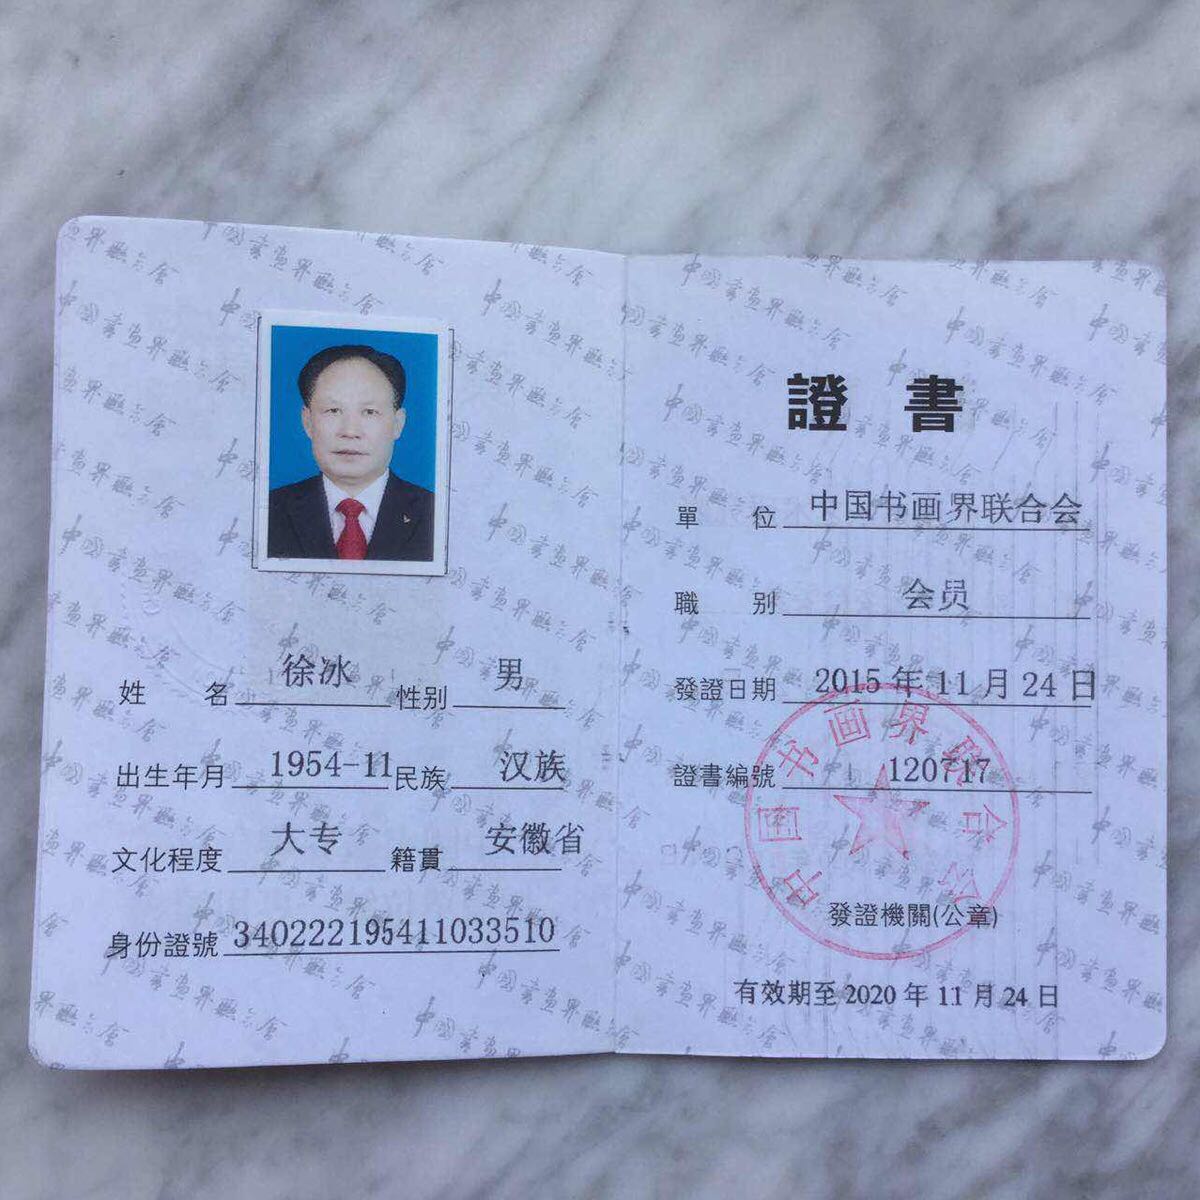 姓 名 徐冰 性别 男
出生年月 1954-11 民族 汉族
文化程度 大专 籍貫 安徽省
身份證號 340222195411033510
證書
單 位 中国书画界联合会
職 别 会员
發證日期 2015年11月24日
證書編號 120717
中国书画界联合会
發證機關(公章)
有效期至2020年11月24日